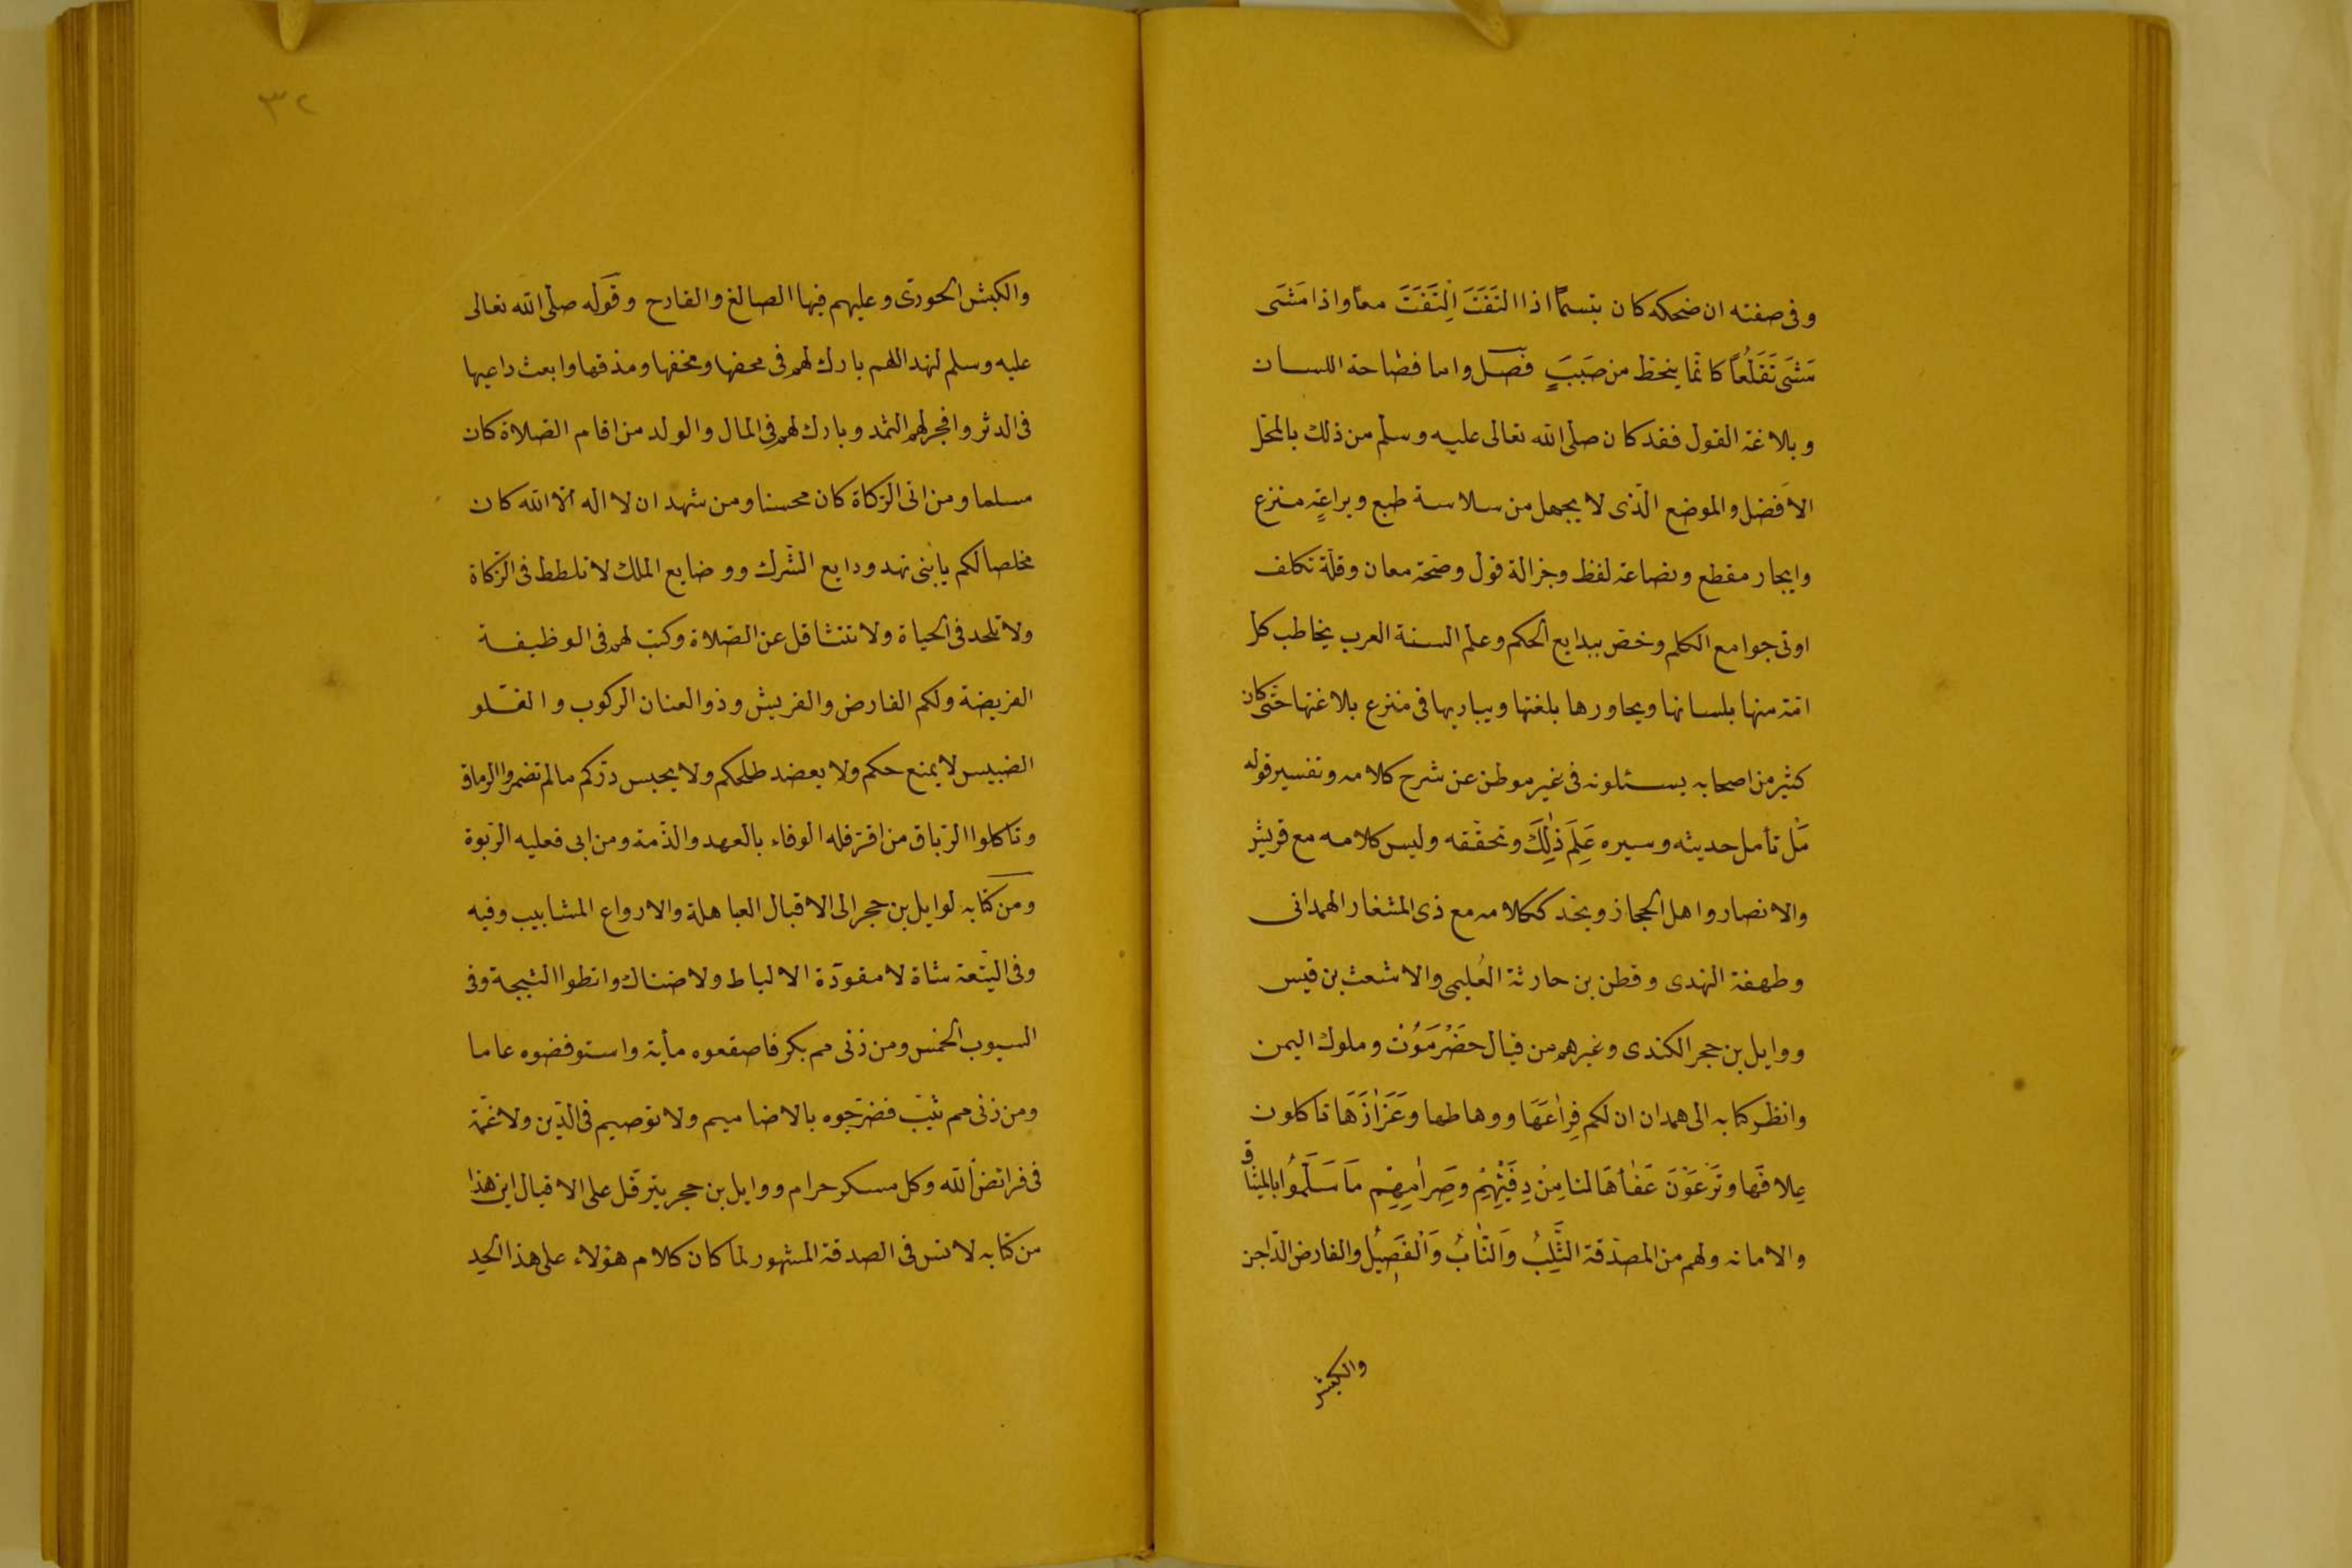 وفى صفته ان ضحكه كان تبسماً اذا التَفَتَ اِلتَفَتَ معاً واذا مَشَى
مَشَى تَقَلُّعاً كانّما ينحط من صَبَبٍ فصل واما فصاحة اللسان
وبلاغة القول فقد كان صلى الله تعالى عليه وسلم من ذلك بالمحل
الافضل والموضع الّذى لا يجهل من سلاسة طبع وبراعةِ منزع
وايجاز مقطع ونصاعة لفظ وجزالة قول وصحّة معان وقلّة تكلف
اوتى جوامع الكلم وخص ببدايع الحكم وعلم السنة العرب يخاطب كل
امّة منها بلسانها ويحاورها بلغتها ويباريها فى منزع بلاغتها حتى كان
كثير من اصحابه يسئلونه فى غير موطن عن شرح كلامه وتفسير قوله
مَن تأمل حديثه وسيره عَلِمَ ذٰلِكَ وتحقّقه وليس كلامه مع قريش
والانصار واهل الحجاز ونجد ككلامه مع ذى المشعار الهمدانى
وطهفة النهدى وقطن بن حارثة العُليمى والاشعث بن قيس
ووايل بن حجر الكندى وغيرهم من قيال حَضْرَمَوْتْ وملوك اليمن
وانظر كتابه الى همدان ان لكم فِرٰاعَهَا ووهاطها وعَزَازَهَا تاكلون
عِلافَها وتَرْعَوْنَ عَفٰأهَا لنا مِنْ دِفَئِهِمْ وصِرٰامِهِمْ مَا سَلَّمُوُا بالميثاق
والامانه ولهم من المصدّقة الثَّلِبُ وَالنّابُ وَالْفَصِيْلُ والفارض الدّاجن
والكبش
٣٢
والكبش الحورى وعليهم فيها الصالغ والقارح وقوله صلى الله تعالى
عليه وسلم لنهد اللهم بارك لهم فى محضها ومخضها ومذقها وابعث داعيها
فى الدثر وافجر لهم الثمد وبارك لهم فى المال والولد من اقام الصلاة كان
مسلما ومن اتى الزكاة كان محسنا ومن شهد ان لا اله الا الله كان
مخلصا لكم يا بنى نهد ودايع الشرك ووضايع الملك لا تلطط فى الزكاة
ولا تلحد فى الحياة ولا تتثاقل عن الصلاة وكتب لهم فى الوظيفة
الفريضة ولكم الفارض والفريش وذو العنان الركوب والفلو
الضبيس لا يمنع حكم ولا يعضد طلحكم ولا يحبس درّكم ما لم تضمروا الرماق
وتاكلوا الرباق من اقر فله الوفاء بالعهد والذّمة ومن ابى فعليه الرّبوة
ومن كتابه لوايل بن حجر الى الاقيال العباهلة والارواع المشابيب وفيه
وفى التّيعة شاة لا مقورّة الالياط ولا ضناك وانطوا الثبجة وفى
السيوب الخمس ومن زنى مم بكر فاصقعوه مأية واستوفضوه عاما
ومن زنى مم ثيّب فضرّجوه بالاضاميم ولا توصيم فى الدّين ولا غمّة
فى فرائض الله وكل مسكر حرام ووايل بن حجر يترفّل على الاقيال اين هذا
من كتابه لانس فى الصدقة المشهور لما كان كلام هؤلاء على هذا الحد